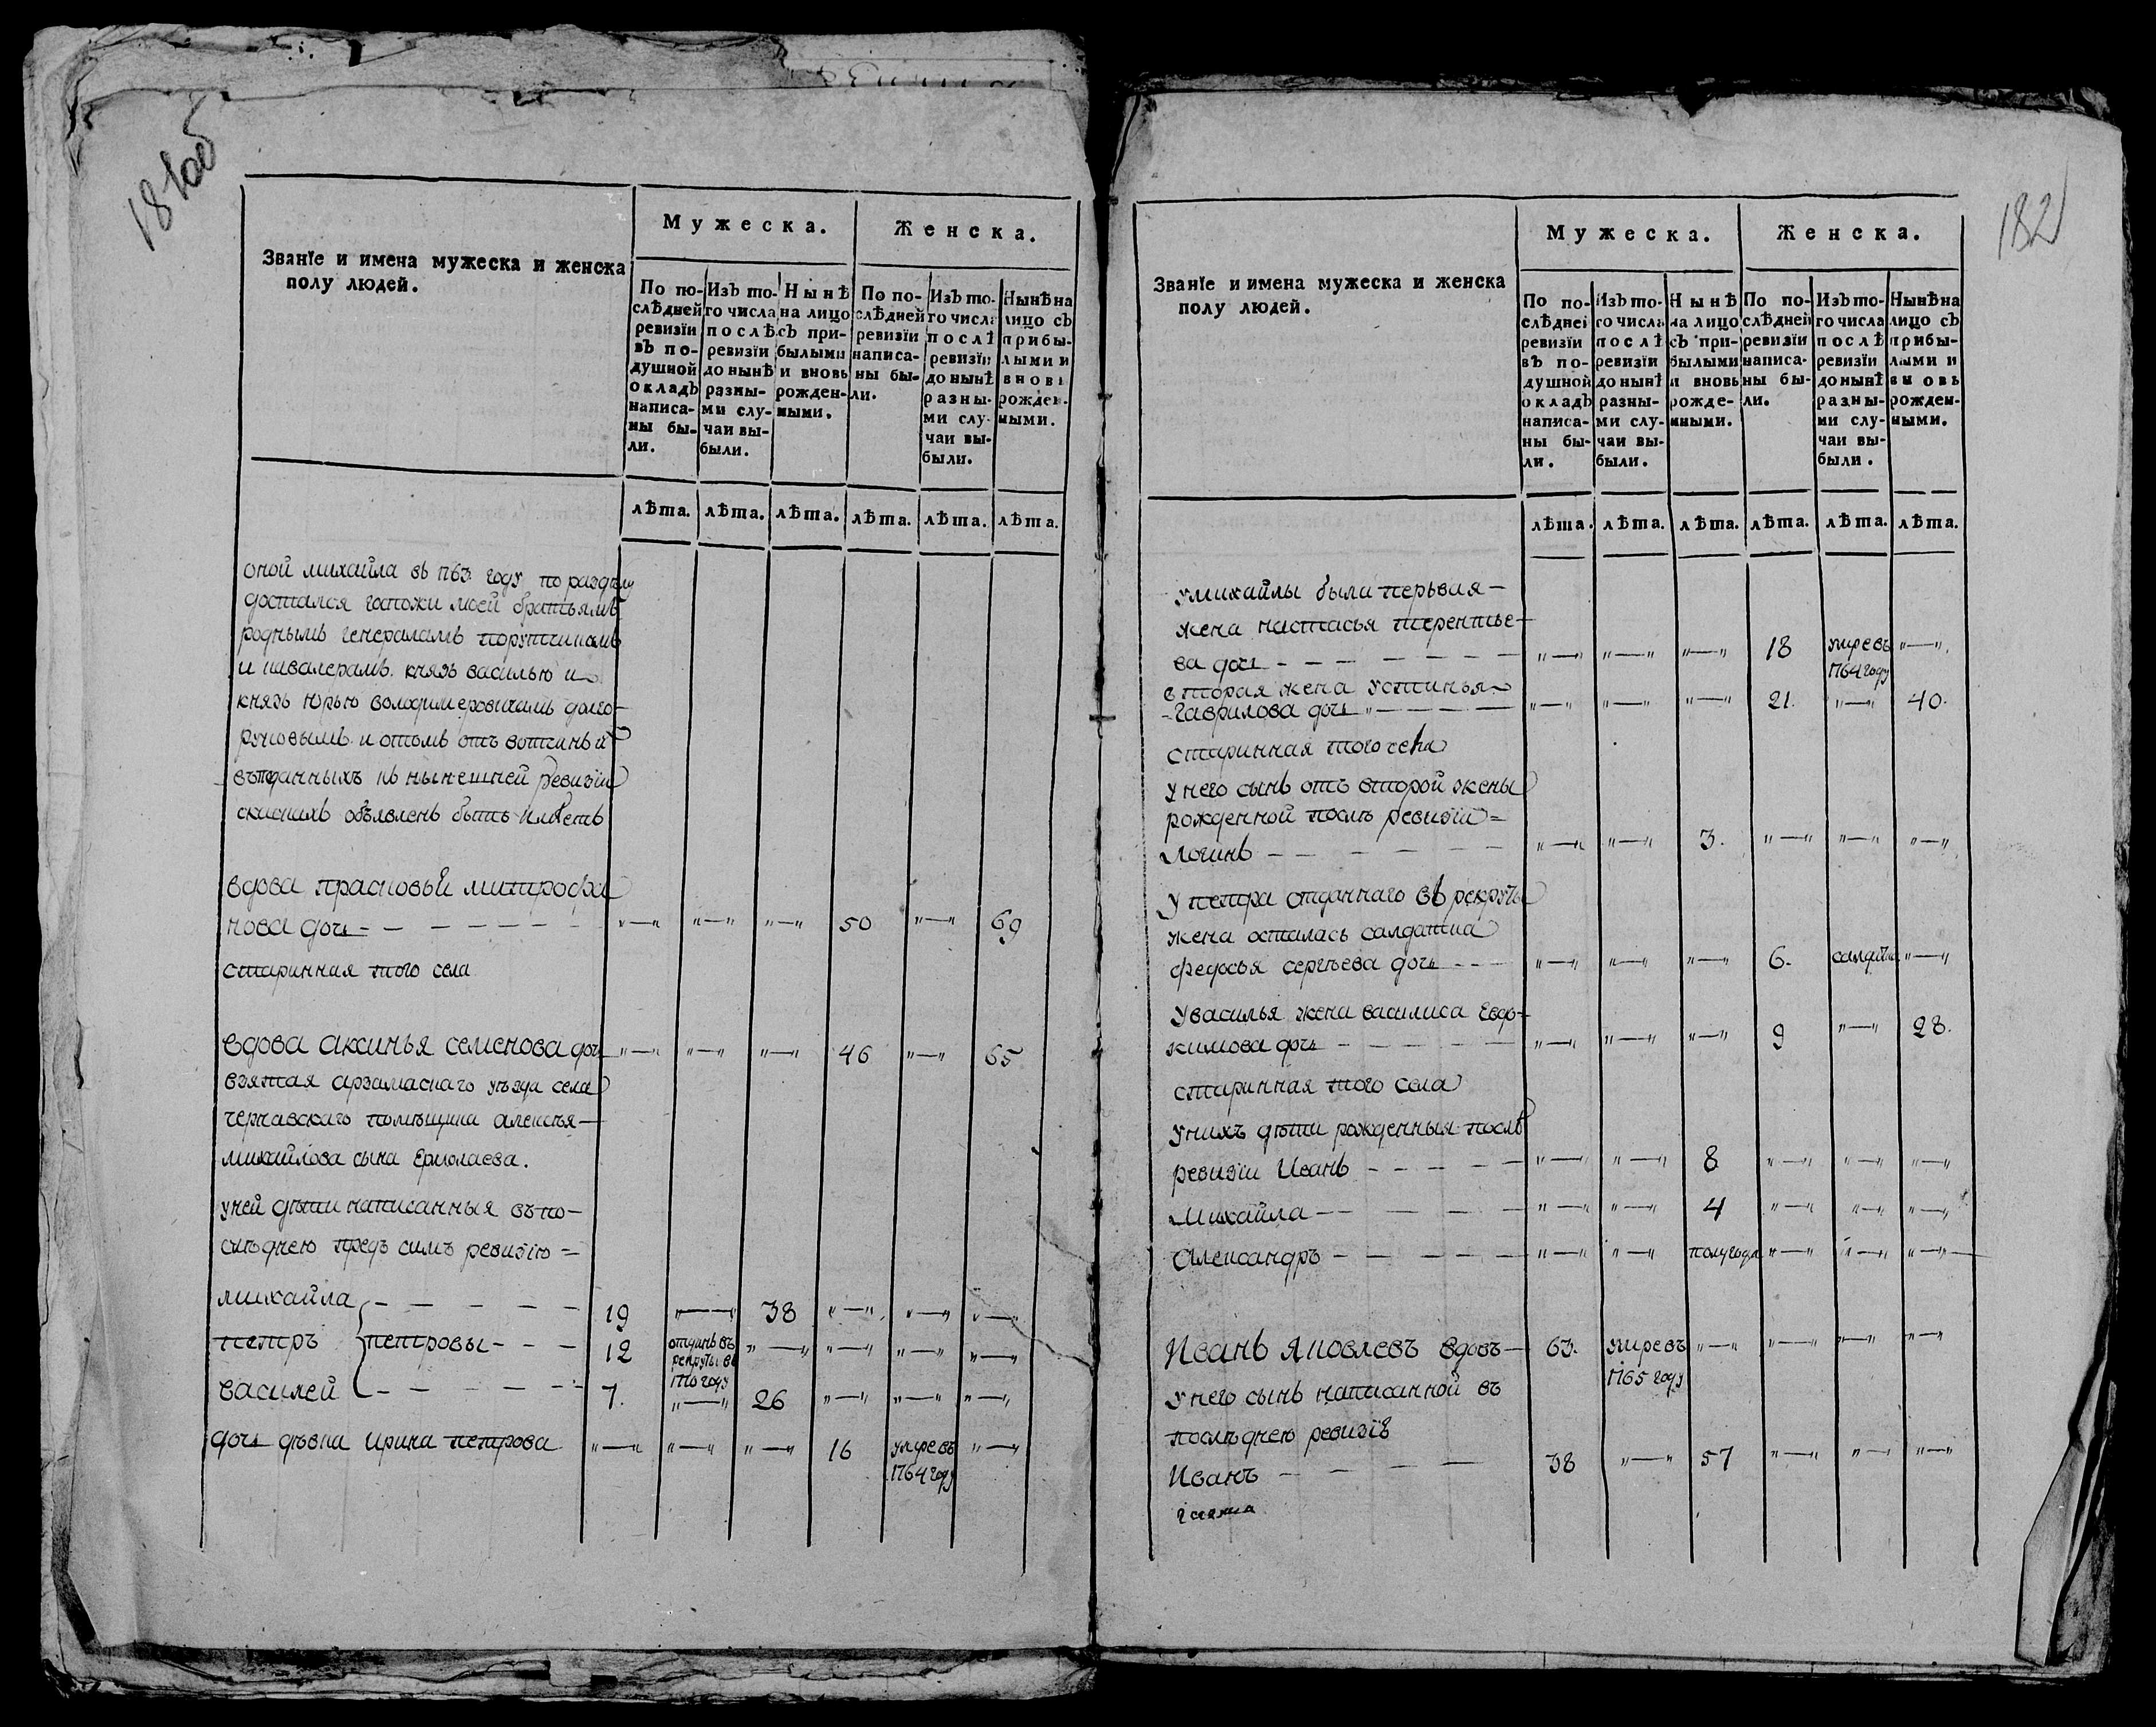 181об
Званїе и имена мужеска и женска
полу людей.
Мужеска.
Женска.
По по-
слѣдней
ревизїи
въ по-
душной
окладъ
написа-
ны бы-
ли.
Изъ то-
го числа
послѣ
ревизїи
до нынѣ
разны-
ми слу-
чаи вы-
были.
Нынѣ
на лицо
съ при-
былыми
и вновь
рожден-
ными.
По по-
слѣдней
ревизїи
написа-
ны бы-
ли.
Изъ то-
го числа
послѣ
ревизїи
до нынѣ
разны-
ми слу-
чаи вы-
были.
Нынѣ на
лицо съ
прибы-
лыми и
вновь
рожден-
ными.
лѣта. лѣта. лѣта. лѣта. лѣта. лѣта.
оной михайла въ 1763 году по раздѣлу
достался гспожи моей братьямъ
роднымъ генераламъ порутчикамъ
и кавалерамъ князь василью и
князь юрью володимеровичамъ долго-
руковымъ и отомъ отъ вотчины
въподанныхъ къ нынешней ревизїи
скаскихъ объявленъ быть имѣетъ
вдова прасковья митрофа
нова дочь - - - - - - - "—" "—" "—" 50 "—" 69
старинная того села
вдова аксинья семенова дочь "—" "—" "—" 46 "—" 65
взятая арзамаскаго уѣзда села
чернавскаго помѣщика алексѣя—
михайлова сына Ермолаева.
уней дѣти написанныя въ по-
слѣднею предъ симъ ревизїю =
михайла - - - - - 19 "—" 38 "—" "—" "—"
петръ петровы - - - 12 отданъ въ рекруты въ 1770 году "—" "—" "—" "—"
василей - - - - - - 7. "—" 26 "—" "—" "—"
дочь дѣвка ирина петрова "—" "—" "—" 16 умре въ 1764 году "—"
182
Званїе и имена мужеска и женска
полу людей.
Мужеска.
Женска.
По по-
слѣдней
ревизїи
въ по-
душной
окладъ
написа-
ны бы-
ли.
Изъ то-
го числа
послѣ
ревизїи
до нынѣ
разны-
ми слу-
чаи вы-
были.
Нынѣ
на лицо
съ при-
былыми
и вновь
рожде-
нными.
По по-
слѣдней
ревизїи
написа-
ны бы-
ли.
Изъ то-
го числа
послѣ
ревизїи
до нынѣ
разны-
ми слу-
чаи вы-
были.
Нынѣ на
лицо съ
прибы-
лыми и
вновь
рожден-
ными.
лѣта. лѣта. лѣта. лѣта. лѣта. лѣта.
умихайлы была перьвая—
жена настасья терентье-
ва дочь - - - - - - - "—" "—" "—" 18 умре въ 1764 году "—"
вторая жена устинья
гаврилова дочь "—" "—" "—" 21. "—" 40.
старинная того села
унего сынъ отъ второй жены
рожденной послѣ ревизїи =
Логинъ - - - - - - "—" "—" 3. "—" "—" "—"
у петра отданнаго въ рекруты
жена осталась салдатка
федосья сергѣева дочь - - - "—" "—" "—" 6. салдатка "—"
увасилья жена василиса Евдо-
кимова дочь - - - - - "—" "—" "—" 9 "—" 28.
старинная того села
унихъ дѣти рожденныя послѣ
ревизїи Иванъ - - - - - "—" "—" 8 "—" "—" "—"
михайла - - - - - "—" "—" 4 "—" "—" "—"
Александръ - - - - - "—" "—" полугода "—" "—" "—"
Иванъ Яковлевъ вдовъ— 63. умре въ 1765 году "—" "—" "—" "—"
унего сынъ написанной въ
послѣднею ревизїю
Иванъ - - - - 38 "—" 57 "—" "—" "—"